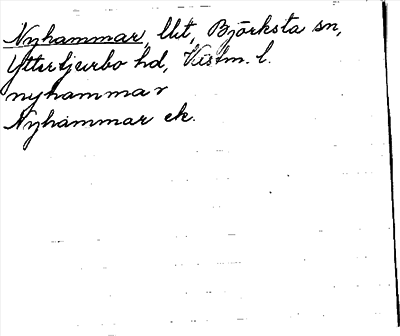 Nyhammar, lht, Björksta sn,
Yttertjurbo hd, Västm. l.
nyhammar
Nyhammar ek.